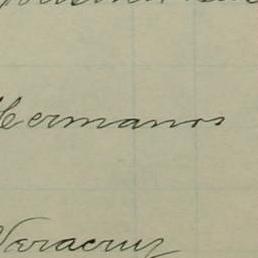 Hermanos
Veracruz